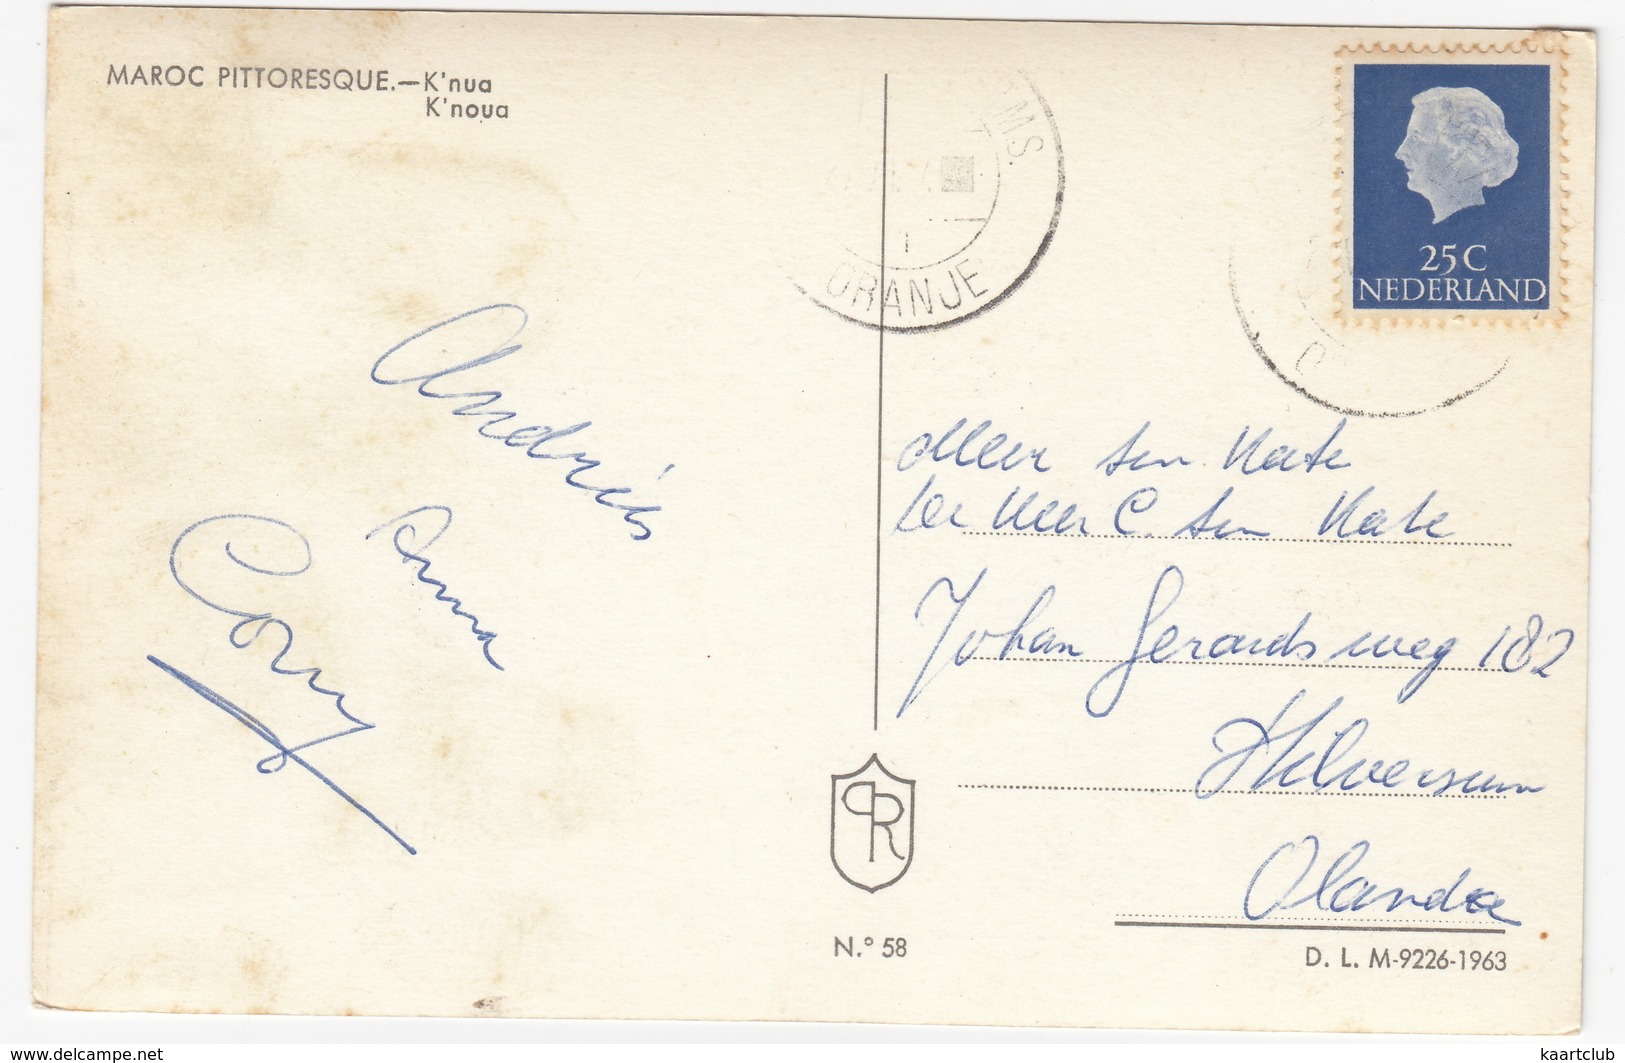 MAROC PITTORESQUE.—K'nua
K'noua
M.S.
ORANJE
25 C
NEDERLAND
Andriés
Anna
Cony
Meer ten Kate
ter Meer C. ten Kate
Johan Gerardsweg 182
Hilversum
Olanda
PR
N.º 58
D. L. M-9226-1963
delcampe.net
kaartclub